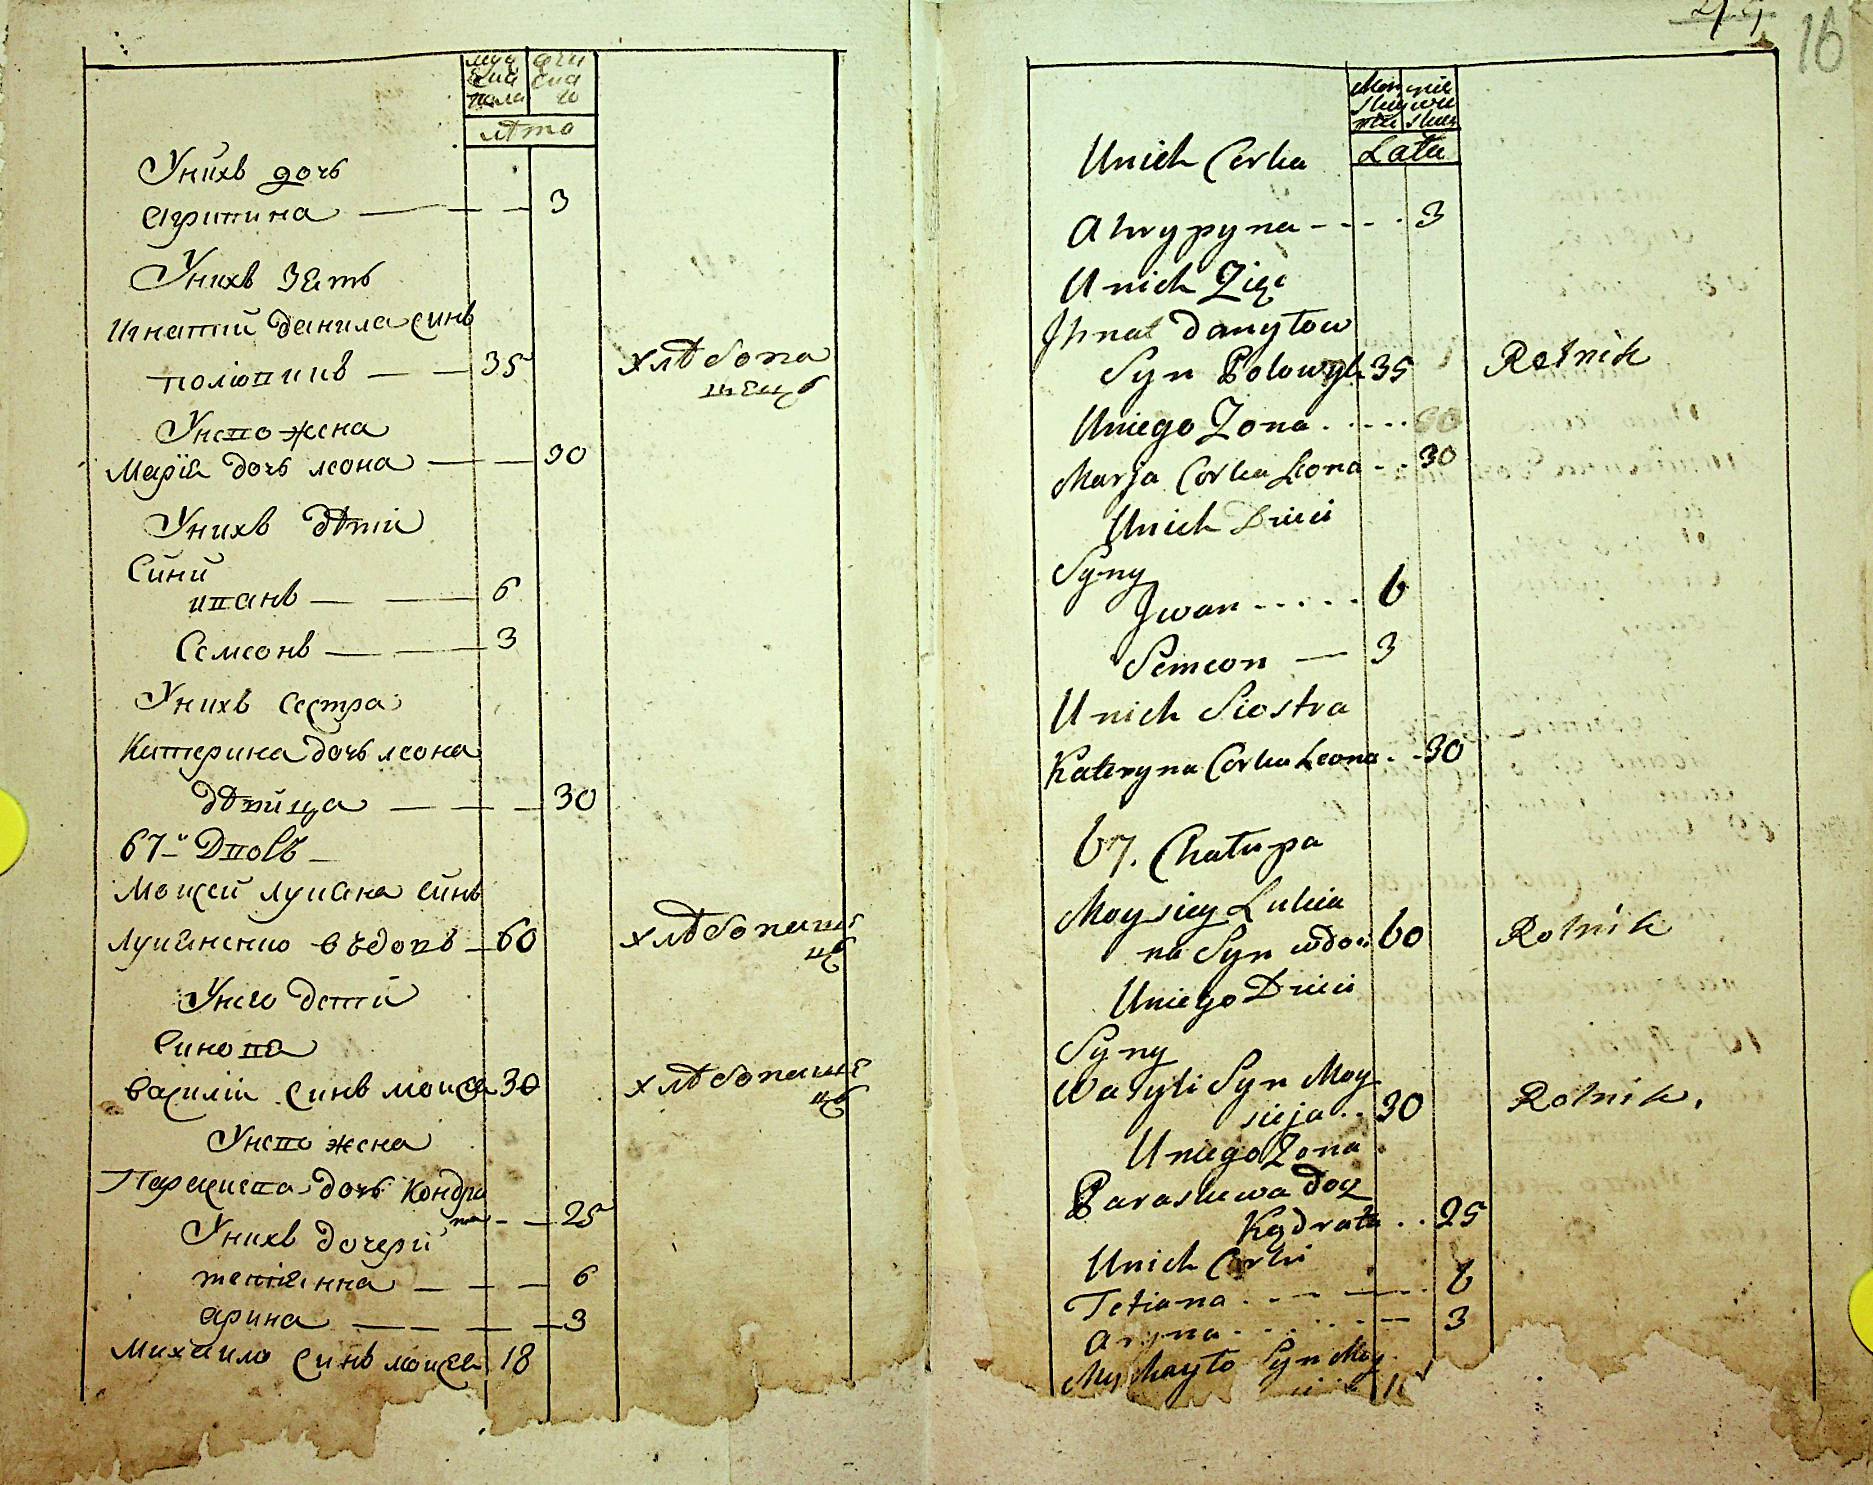 муж
ска
пола
жен
ска
го
лѣто
Унихъ дочь
Агрипина — — — 3
Унихъ зять
Игнатій данила синъ
половикъ — — 35
хлѣбопа
шецъ
Унего жена
Марія дочь леона — — 30
Унихъ дѣти
Сини
иванъ — — 6
Семеонъ — — 3
Унихъ сестра
Катерина дочь леона
дѣвица — — — 30
67-й Дворъ
Моисей лукіяна синъ
лукіяненко въдовъ — 60
хлѣбопаше
цъ
Унего дети
Синова
василій синъ моисея 30
хлѣбопаше
цъ
Унего жена
Параскева дочь Кондра
та — — 25
Унихъ дочери
тетіянна — — — 6
арина — — — — 3
Михаило синъ моисея 18
16
Męz
skiey
płci
nie
wie
skiey
Lata
Unich Corka
Ahrypyna - - - - 3
Unich Zięć
Ihnat Danyłow
Syn Połowyk 35
Rolnik
Uniego Zona . - - - -
Marja Corka Leona - - 30
Unich Dzieci
Syny
Jwan - - - - - 6
Semeon — 3
Unich Siostra
Kateryna Corka Leona . - 30
67. Chałupa
Moysiey Lukia
na Syn wdow 60
Rolnik
Uniego Dzieci
Syny
Wasyli Syn Moy
sieja . . 30
Rolnik.
Uniego Zona
Paraskewa Doч
Kądrata . . 25
Unich Corki
Tetiana . - - — — . 6
Aryna - . . . . - — 3
Myhayło Syn Moy